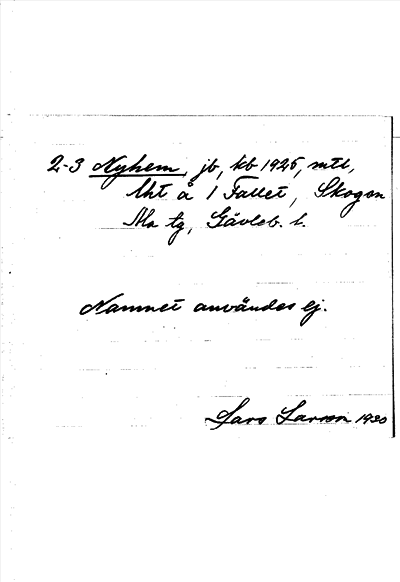 2-3 Nyhem, jb, kb 1925, mtl,
Uht å 1 Fallet, Skogon
Ala tg, Gävleb. l.
Namnet användes ej.
Lars Larson 1930